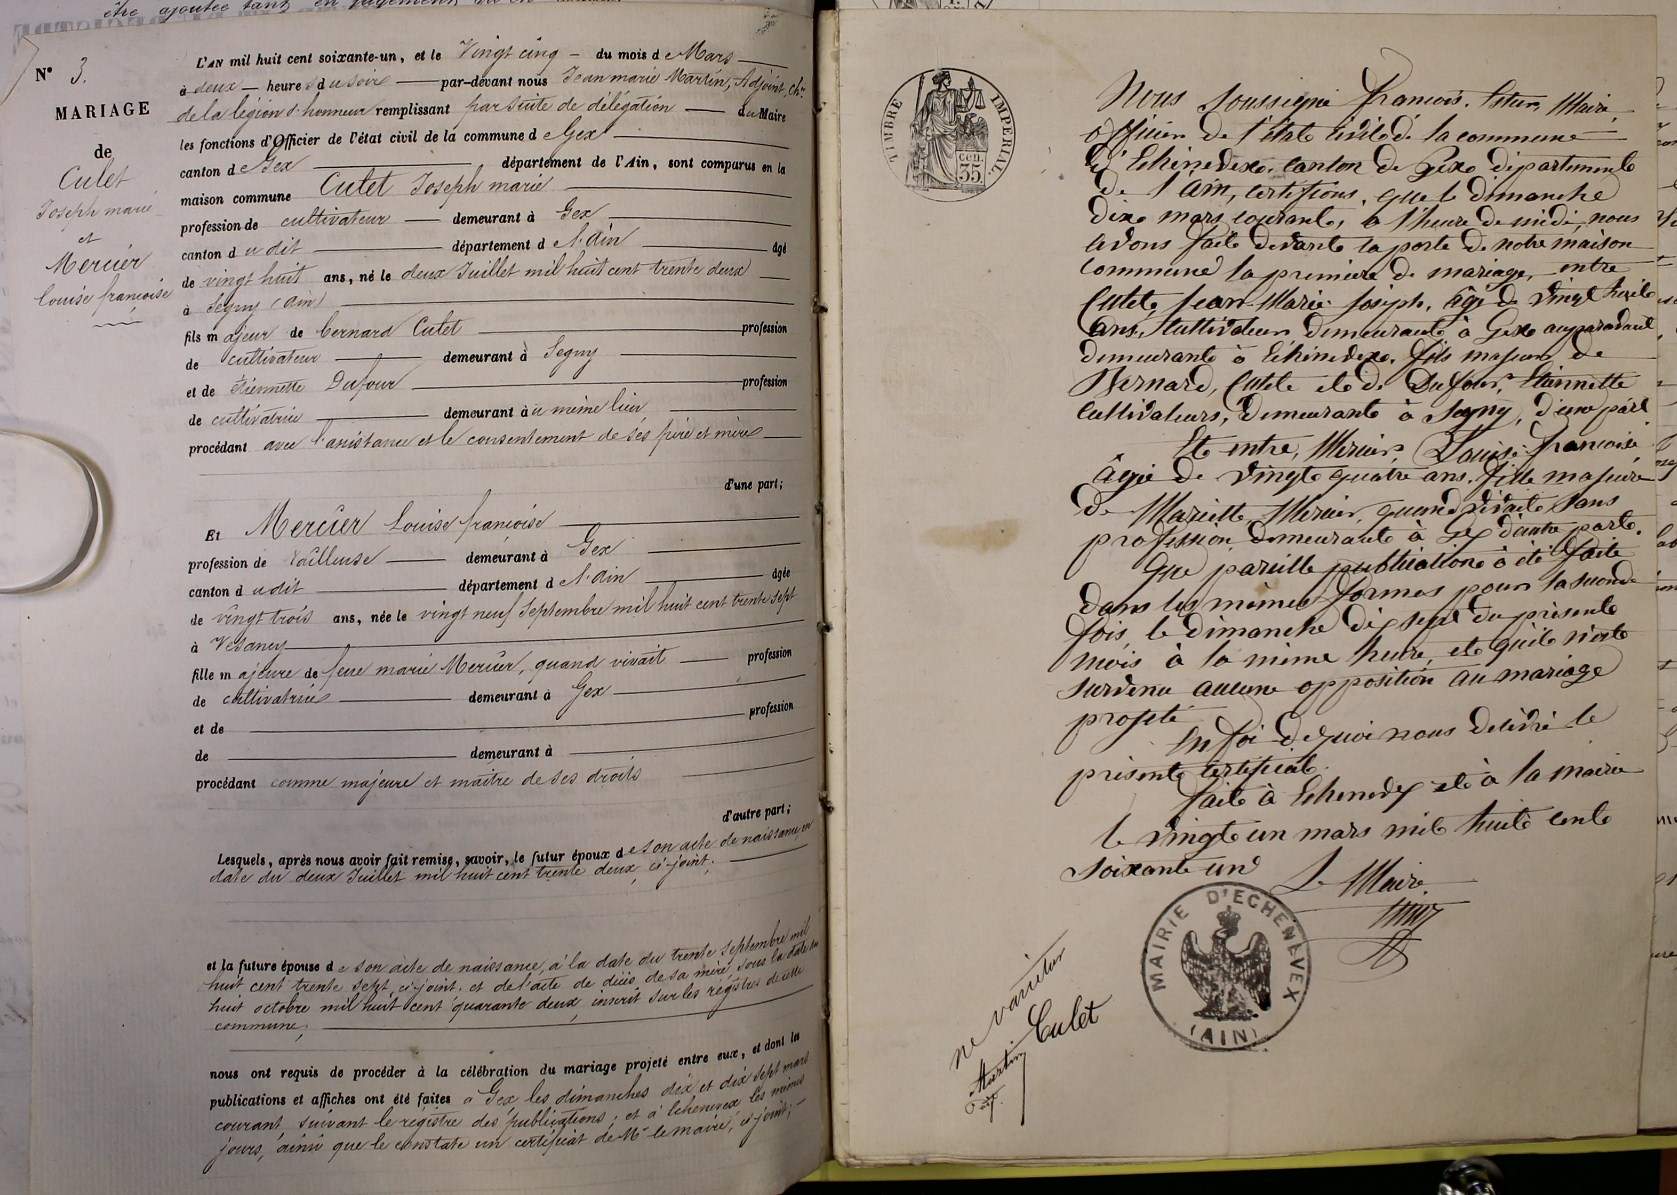 être ajoutée tant en jugement
N° 3.
MARIAGE
de
Culet
Joseph marie
et
Mercier
Louise françoise
L'AN mil huit cent soixante-un, et le Vingt cinq du mois de Mars
à deux heures du soir par-devant nous Jean marie Martin, Adjoint, Chr
de la légion d'honneur remplissant par suite de délégation du Maire
les fonctions d'Officier de l'état civil de la commune de Gex
canton de Gex département de l'Ain, sont comparus en la
maison commune Culet Joseph marie
profession de cultivateur demeurant à Gex
canton du dit département de l'Ain âgé
de vingt huit ans, né le deux Juillet mil huit cent trente deux
à Segny (Ain)
fils majeur de Bernard Culet profession
de cultivateur demeurant à Segny
et de Etiennette Dufour profession
de cultivatrice demeurant au même lieu
procédant avec l'assistance et le consentement de ses père et mère
d'une part;
Et Mercier Louise françoise
profession de tailleuse demeurant à Gex
canton du dit département de l'Ain âgée
de vingt trois ans, née le vingt neuf Septembre mil huit cent trente sept
à Vesancy
fille majeure de feue marie Mercier, quand vivait profession
de cultivatrice demeurant à Gex
et de profession
de demeurant à
procédant comme majeure et maître de ses droits
d'autre part;
Lesquels, après nous avoir fait remise, savoir, le futur époux de son acte de naissance en
date du deux Juillet mil huit cent trente deux, ci-joint;
et la future épouse de son acte de naissance, à la date du trente septembre mil
huit cent trente sept, ci-joint, et de l'acte de décès de sa mère, sous la date du
huit octobre mil huit cent quarante deux, inscrit sur les régistres de cette
commune;
nous ont requis de procéder à la célébration du mariage projeté entre eux, et dont les
publications et affiches ont été faites à Gex les dimanches dix et dix sept mars
courant, suivant le régistre des publications; et à Echenevex les mêmes
jours, ainsi que le constate un certificat de Mr le maire, ci joint;
TIMBRE IMPERIAL.
CEN.
35
Nous soussigné françois Maire,
officier de l'état civil de la commune
d'Echenevex, canton de Gex, département
de l'ain, certifions, que le dimanche
dix mars courant, à l'heure de midi, nous
avons fait devant la porte de notre maison
commune la première de mariage, entre
Culet, Jean Marie Joseph, âgé de vingt huit
ans, Cultivateur demeurant à Gex auparavant
demeurant à Echenevex, fils majeur de
Bernard, Culet et de Dufour, Etiennette
cultivateurs, demeurant à Segny, d'une part
Et entre, Mercier, Louise françoise
âgée de vingt quatre ans, fille majeure
de Mariette Mercier, quand vivait sans
profession, demeurant à Gex d'autre part.
Que pareille publication a été faite
dans les mêmes formes pour la seconde
fois, le dimanche dix sept du présent
mois à la même heure, et qu'il n'est
survenu aucune opposition au mariage
projeté
En foi de quoi nous délivré le
présent certificat.
fait à Echenevex et à la mairie
le vingt un mars mil huit cent
soixante un Le Maire.
MAIRIE D'ECHENEVEX
(AIN)
ne varietur
Culet
Martin